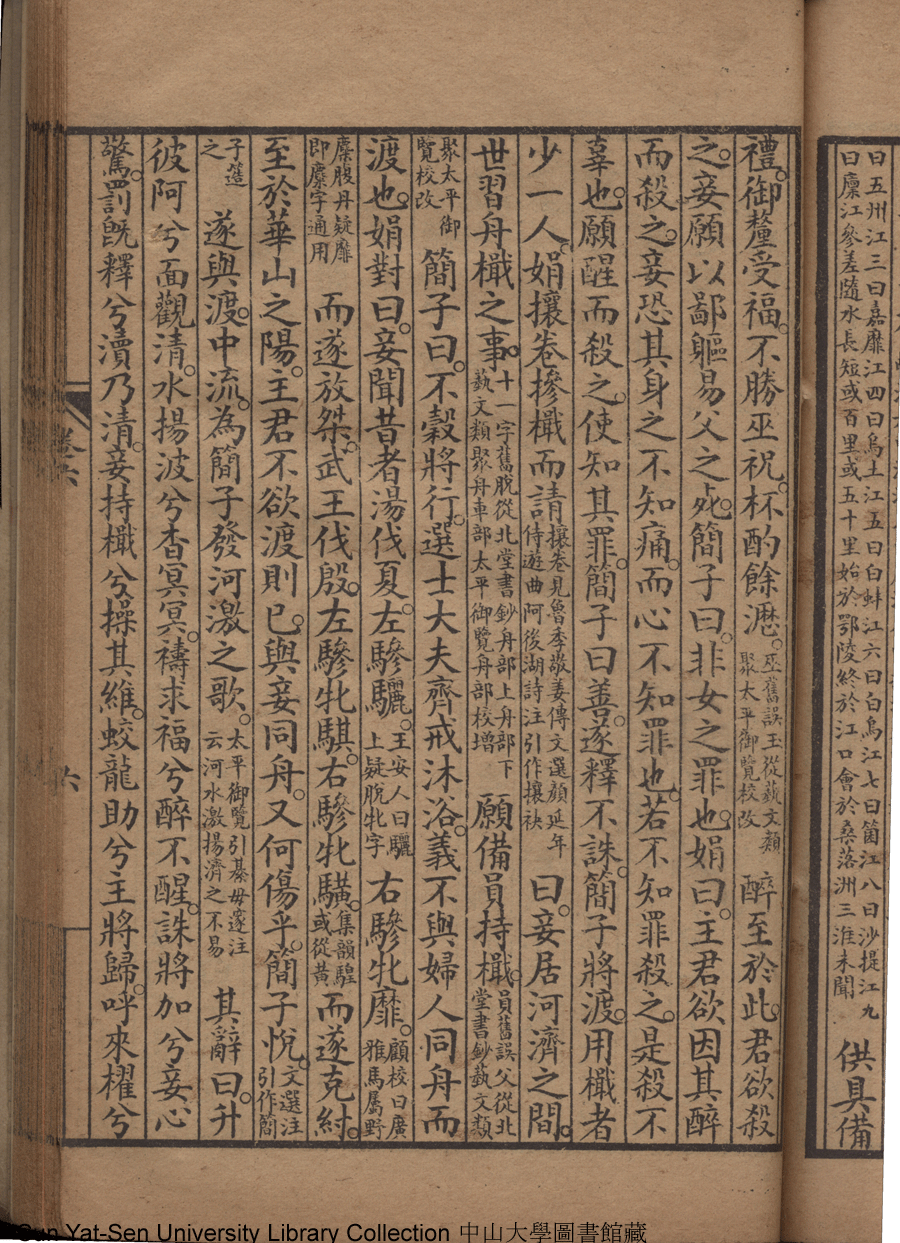 曰五州江三曰嘉靡江四曰烏土江五曰白蚌江六曰白烏江七曰箘江八曰沙提江九
曰廩江參差隨水長短或百里或五十里始於鄂陵終於江口會於桑落洲三淮未聞
供具備
禮。御釐受福。不勝巫祝。杯酌餘瀝。巫舊誤王從藝文類聚太平御覽校改 醉至於此。君欲殺
之。妾願以鄙軀易父之死。簡子曰。非女之罪也。娟曰。主君欲因其醉
而殺之。妾恐其身之不知痛。而心不知罪也。若不知罪殺之。是殺不
辜也。願醒而殺之。使知其罪。簡子曰善。遂釋不誅。簡子將渡。用檝者
少一人。娟攘卷摻檝而請攘卷見魯季敬姜傳文選顏延年侍遊曲阿後湖詩注引作攘袂 曰。妾居河濟之間。
世習舟檝之事。十一字舊脫從北堂書鈔舟部上舟部下藝文類聚舟車部太平御覽舟部校增 願備員持檝。員舊誤父從北堂書鈔藝文類
聚太平御覽校改 簡子曰。不穀將行。選士大夫齊戒沐浴。義不與婦人同舟而
渡也。娟對曰。妾聞昔者湯伐夏。左驂驪。王安人曰驪上疑脫牝字 右驂牝靡。顧校曰廣雅馬屬野
麋腹丹疑靡即麋字通用 而遂放桀。武王伐殷。左驂牝騏。右驂牝騜。集韻騜或從黃 而遂克紂。
至於華山之陽。主君不欲渡則已。與妾同舟。又何傷乎。簡子悅。文選注引作簡
子簉之 遂與渡。中流。為簡子發河激之歌。太平御覽引綦毋邃注云河水激揚濟之不易 其辭曰。升
彼阿兮面觀清。水揚波兮杳冥冥。禱求福兮醉不醒。誅將加兮妾心
驚。罰旣釋兮瀆乃清。妾持檝兮操其維。蛟龍助兮主將歸。呼來櫂兮
卷六
六
Sun Yat-Sen University Library Collection 中山大學圖書館藏